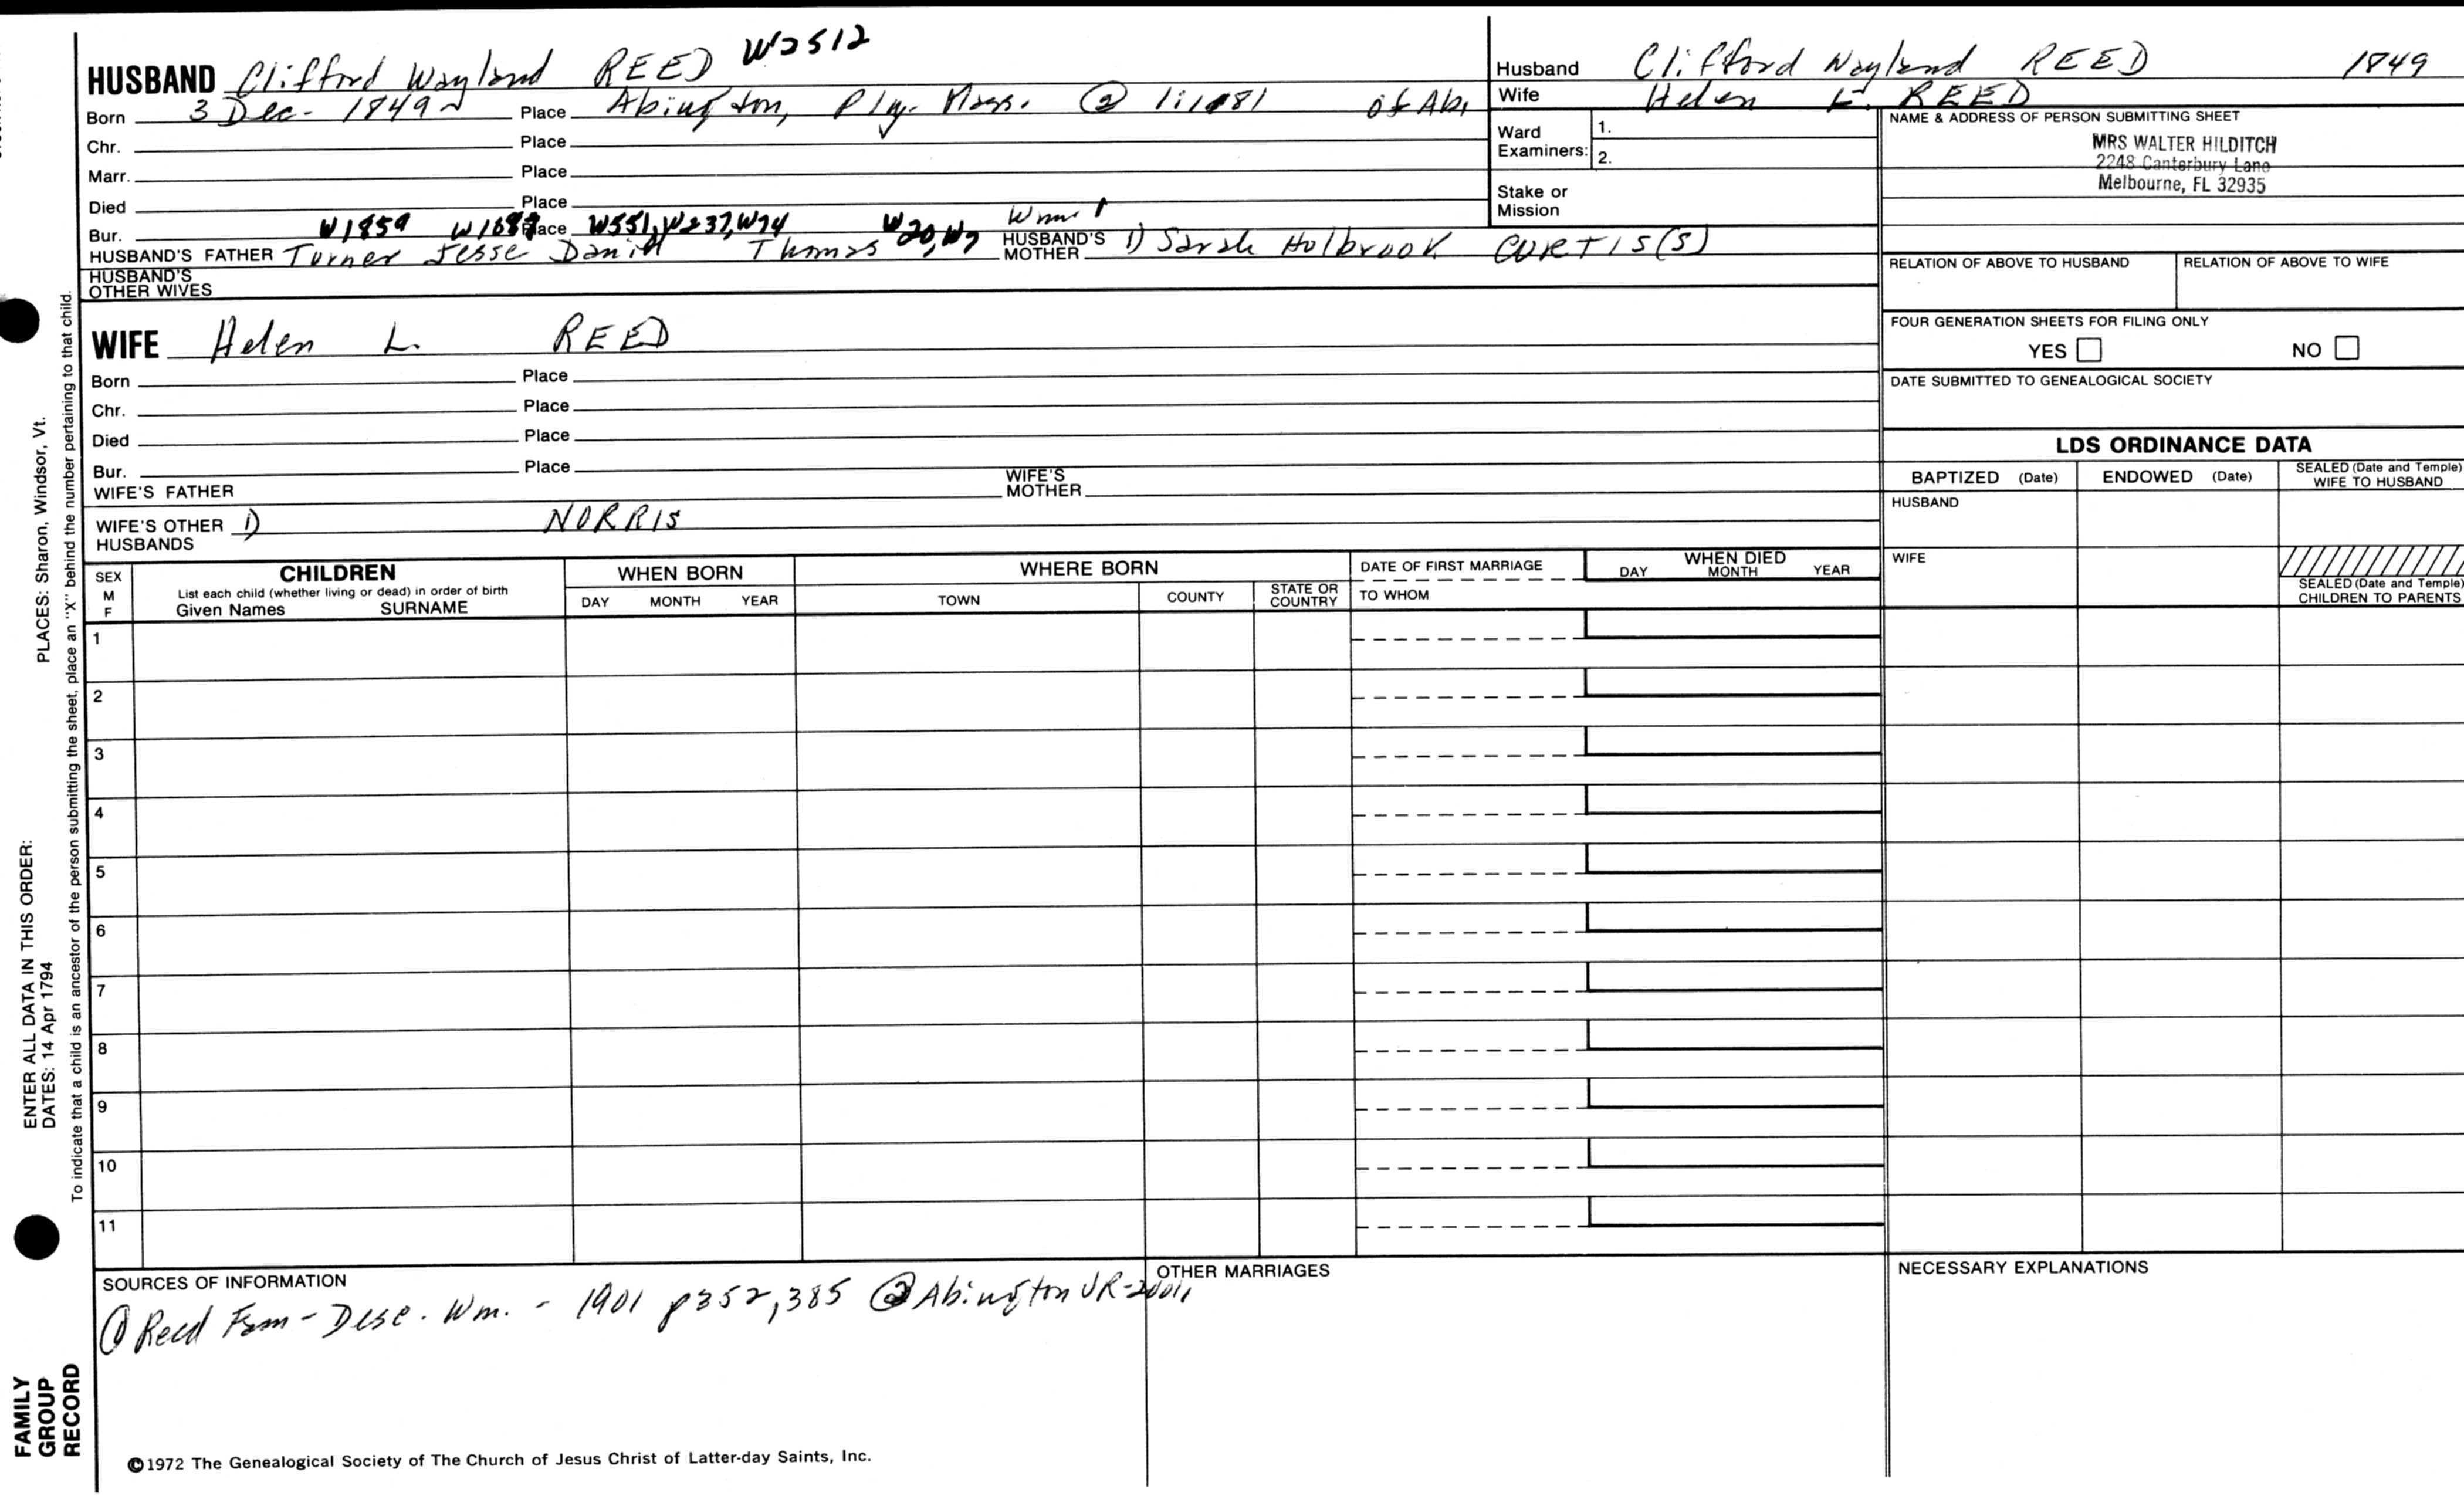 HUSBAND Clifford Wayland REED W2512
Born 3 Dec. 1849 Place Abington, Ply. Mass. of Ab.
Chr. Place
Marr. Place
Died Place
Bur. W1859 Place W551, W237, W74 W20, W7
HUSBAND'S FATHER Turner Jesse Daniel Thomas HUSBAND'S MOTHER 1) Sarah Holbrook CURTIS(S)
HUSBAND'S OTHER WIVES
WIFE Helen L. REED
Born Place
Chr. Place
Died Place
Bur. Place
WIFE'S FATHER WIFE'S MOTHER
WIFE'S OTHER HUSBANDS 1) NORRIS
Husband Clifford Wayland REED 1849
Wife Helen L. REED
Ward Examiners: 1.
2.
Stake or Mission
NAME & ADDRESS OF PERSON SUBMITTING SHEET
MRS WALTER HILDITCH
2248 Canterbury Lane
Melbourne, FL 32935
RELATION OF ABOVE TO HUSBAND RELATION OF ABOVE TO WIFE
FOUR GENERATION SHEETS FOR FILING ONLY
YES NO
DATE SUBMITTED TO GENEALOGICAL SOCIETY
LDS ORDINANCE DATA
BAPTIZED (Date) ENDOWED (Date) SEALED (Date and Temple) WIFE TO HUSBAND
HUSBAND
WIFE
SEALED (Date and Temple) CHILDREN TO PARENTS
SEX M F
CHILDREN
List each child (whether living or dead) in order of birth
Given Names SURNAME
WHEN BORN
DAY MONTH YEAR
WHERE BORN
TOWN COUNTY STATE OR COUNTRY
DATE OF FIRST MARRIAGE
TO WHOM
WHEN DIED
DAY MONTH YEAR
1
2
3
4
5
6
7
8
9
10
11
SOURCES OF INFORMATION
① Reed Fam - Desc. Wm. - 1901 p352,385 ② Abington VR-
OTHER MARRIAGES
NECESSARY EXPLANATIONS
©1972 The Genealogical Society of The Church of Jesus Christ of Latter-day Saints, Inc.
PLACES: Sharon, Windsor, Vt.
To indicate that a child is an ancestor of the person submitting the sheet, place an "X" behind the number pertaining to that child.
ENTER ALL DATA IN THIS ORDER:
DATES: 14 Apr 1794
FAMILY
GROUP
RECORD